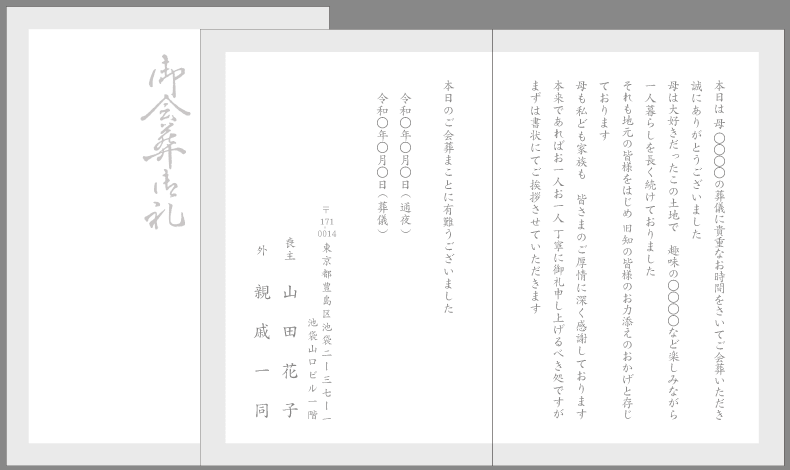 御会葬御礼
本日は 母 〇〇〇〇の葬儀に貴重なお時間をさいてご会葬いただき
誠にありがとうございました
母は大好きだったこの土地で 趣味の〇〇〇〇など楽しみながら
一人暮らしを長く続けておりました
それも地元の皆様をはじめ 旧知の皆様のお力添えのおかげと存じ
ております
母も私ども家族も 皆さまのご厚情に深く感謝しております
本来であればお一人お一人 丁寧に御礼申し上げるべき処ですが
まずは書状にてご挨拶させていただきます
本日のご会葬まことに有難うございました
令和〇年〇月〇日(通夜)
令和〇年〇月〇日(葬儀)
〒171 0014 東京都豊島区池袋二ー三七ー一
池袋山口ビル一階
喪主 山田花子
外 親戚一同